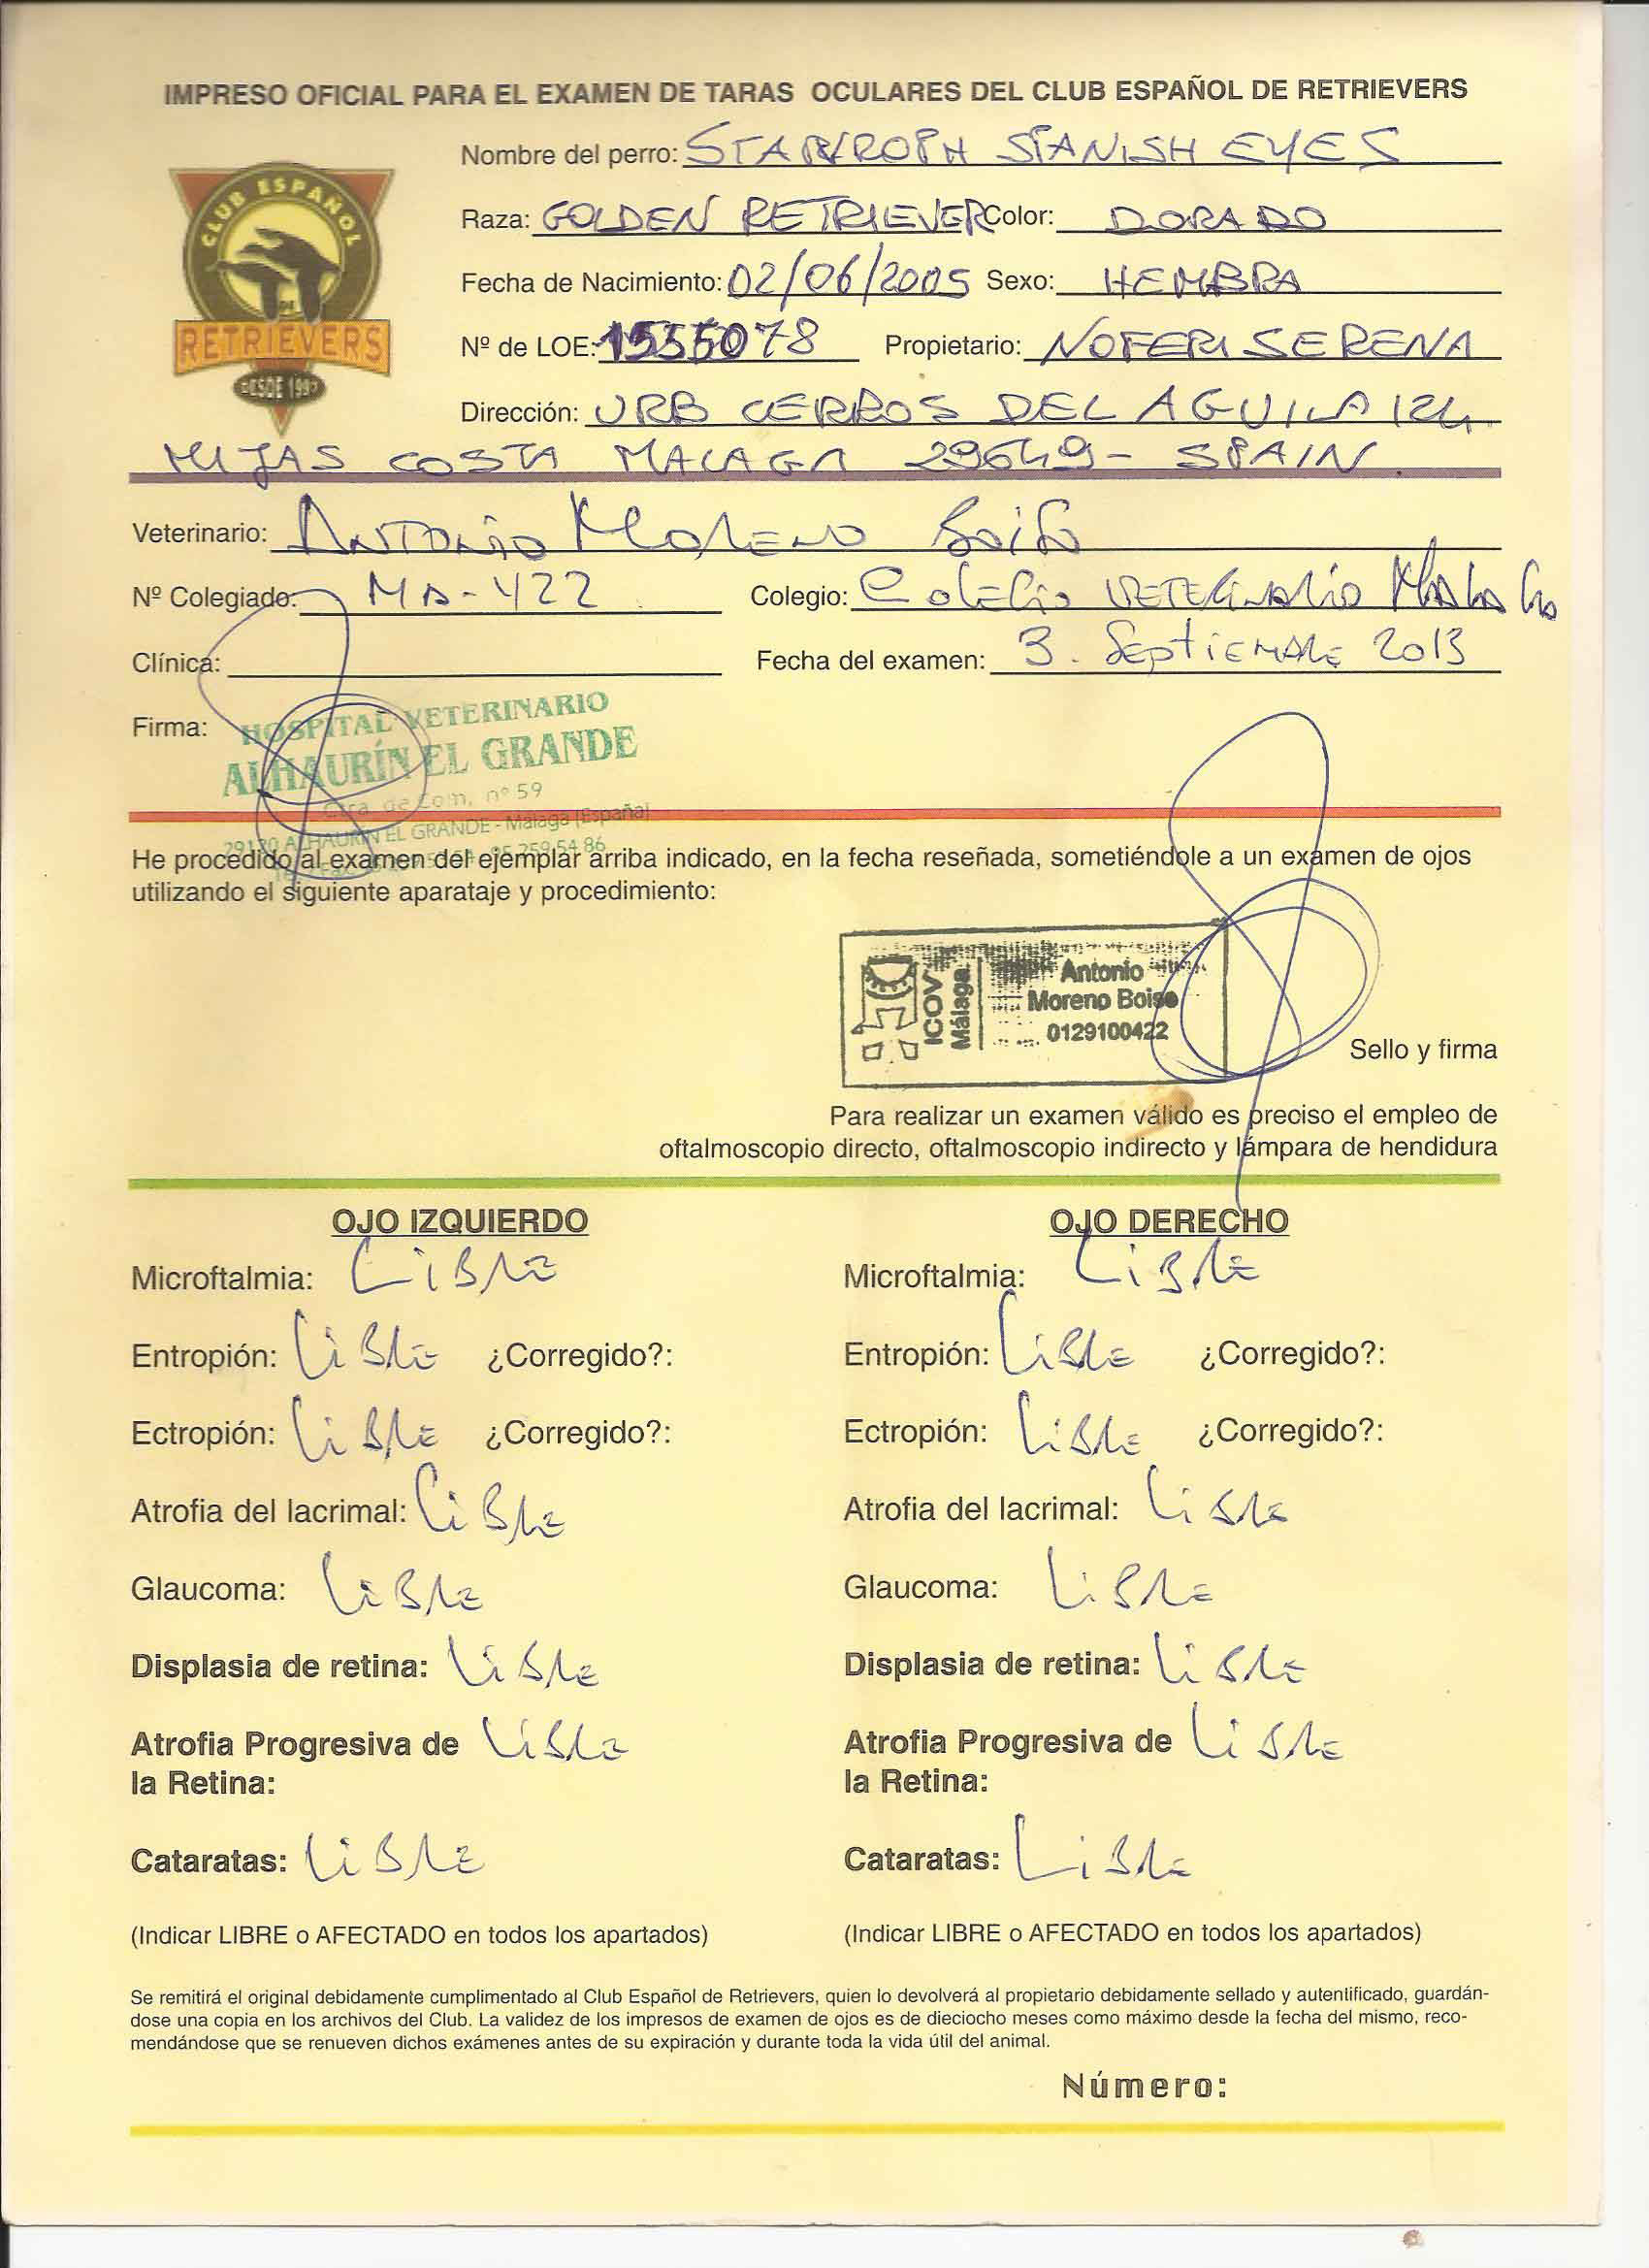 IMPRESO OFICIAL PARA EL EXAMEN DE TARAS OCULARES DEL CLUB ESPAÑOL DE RETRIEVERS
CLUB ESPAÑOL
DE
RETRIEVERS
DESDE
Nombre del perro: EYES
Raza: GOLDEN RETRIEVER Color: DORADO
Fecha de Nacimiento: 02/06/2005 Sexo: HEMBRA
Nº de LOE: Propietario: NOFERI SERENA
Dirección: URB CERROS DEL AGUILA 124
MIJAS COSTA MALAGA 29649 - SPAIN
Veterinario: ANTONIO MORENO
Nº Colegiado: MA-422 Colegio: COLEGIO VETERINARIO MALAGA
Clínica: Fecha del examen: 3. SEPTIEMBRE 2013
Firma:
HOSPITAL VETERINARIO
ALHAURÍN EL GRANDE
Ctra. de Com, nº 59
29120 ALHAURÍN EL GRANDE - Málaga (España)
He procedido al examen del ejemplar arriba indicado, en la fecha reseñada, sometiéndole a un examen de ojos
utilizando el siguiente aparataje y procedimiento:
ICOV
Málaga
Antonio
Moreno Boiso
0129100422
Sello y firma
Para realizar un examen válido es preciso el empleo de
oftalmoscopio directo, oftalmoscopio indirecto y lámpara de hendidura
OJO IZQUIERDO
Microftalmia: LIBRE
Entropión: LIBRE ¿Corregido?:
Ectropión: LIBRE ¿Corregido?:
Atrofia del lacrimal: LIBRE
Glaucoma: LIBRE
Displasia de retina: LIBRE
Atrofia Progresiva de LIBRE
la Retina:
Cataratas: LIBRE
(Indicar LIBRE o AFECTADO en todos los apartados)
OJO DERECHO
Microftalmia: LIBRE
Entropión: LIBRE ¿Corregido?:
Ectropión: LIBRE ¿Corregido?:
Atrofia del lacrimal: LIBRE
Glaucoma: LIBRE
Displasia de retina: LIBRE
Atrofia Progresiva de LIBRE
la Retina:
Cataratas: LIBRE
(Indicar LIBRE o AFECTADO en todos los apartados)
Se remitirá el original debidamente cumplimentado al Club Español de Retrievers, quien lo devolverá al propietario debidamente sellado y autentificado, guardán-
dose una copia en los archivos del Club. La validez de los impresos de examen de ojos es de dieciocho meses como máximo desde la fecha del mismo, reco-
mendándose que se renueven dichos exámenes antes de su expiración y durante toda la vida útil del animal.
Número: